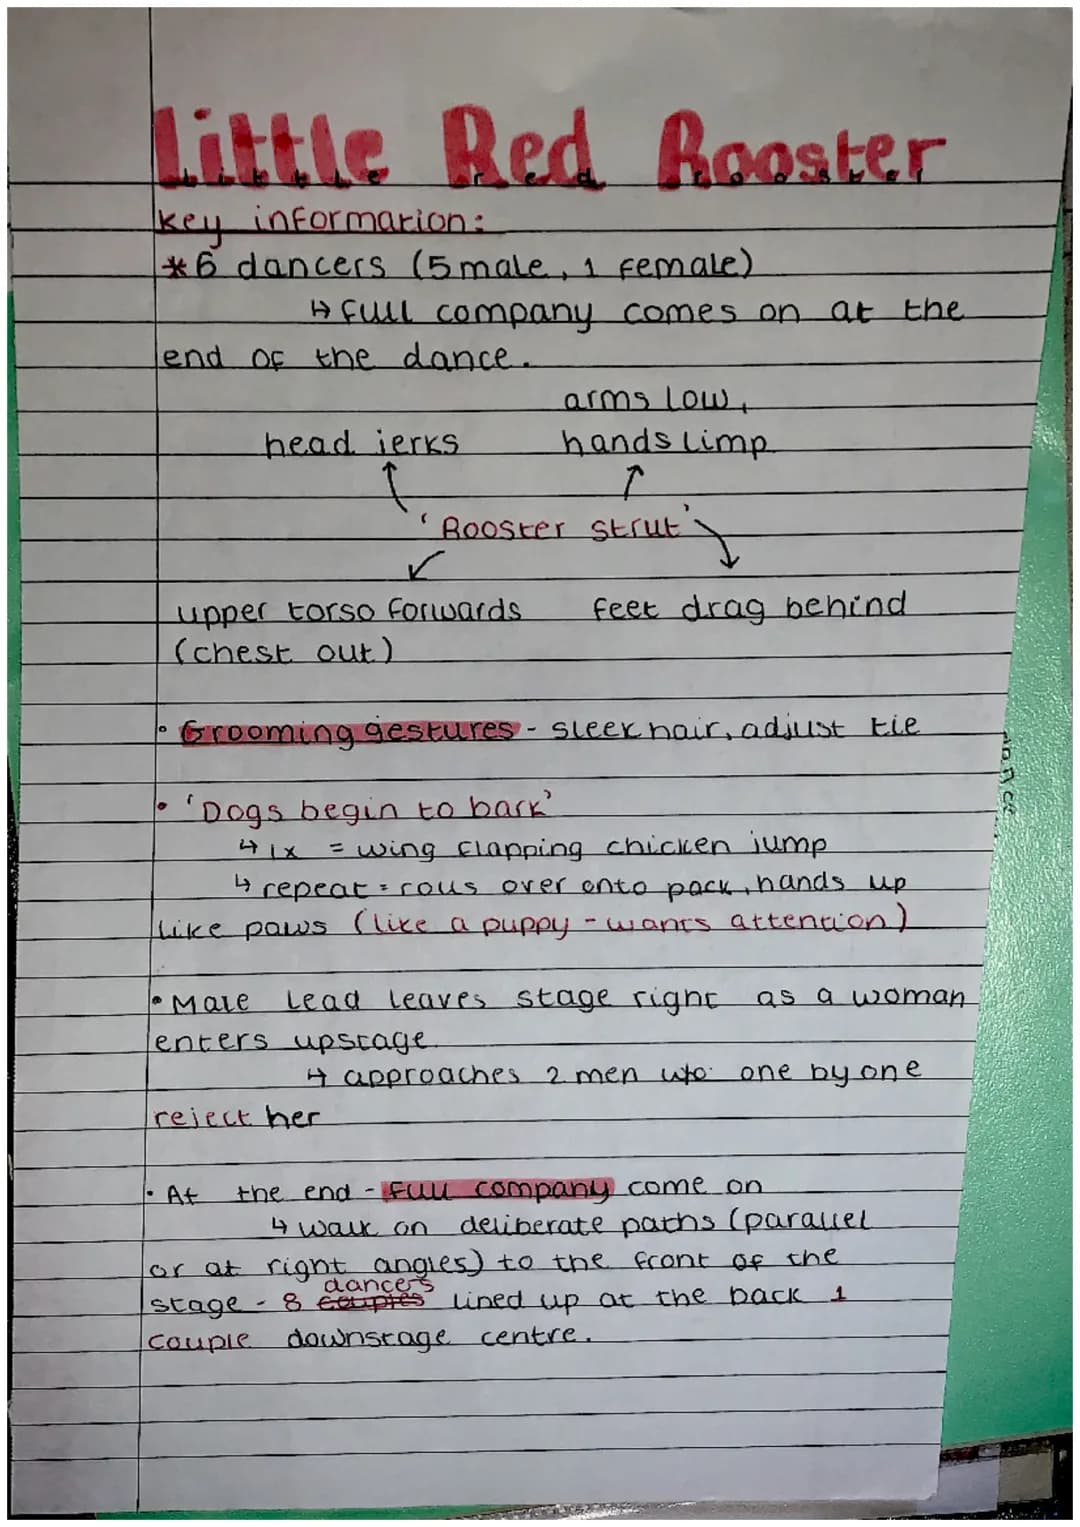 Little Red Rooster
little red rooster
key information:
*6 dancers (5 male, 1 female)
↳ full company comes on at the
end of the dance.
arms low,
head jerks hands limp
'Rooster strut'
upper torso forwards feet drag behind
(chest out)
• Grooming gestures - sleek hair, adjust tie
• 'Dogs begin to bark'
↳ 1x = wing flapping chicken jump
↳ repeat = rolls over onto back, hands up
like paws (like a puppy - wants attention)
• Male lead leaves stage right as a woman
enters upstage.
↳ approaches 2 men who one by one
reject her
• At the end - full company come on
↳ walk on deliberate paths (parallel
or at right angles) to the front of the
dancers
stage - 8 couples lined up at the back 1
couple downstage centre.